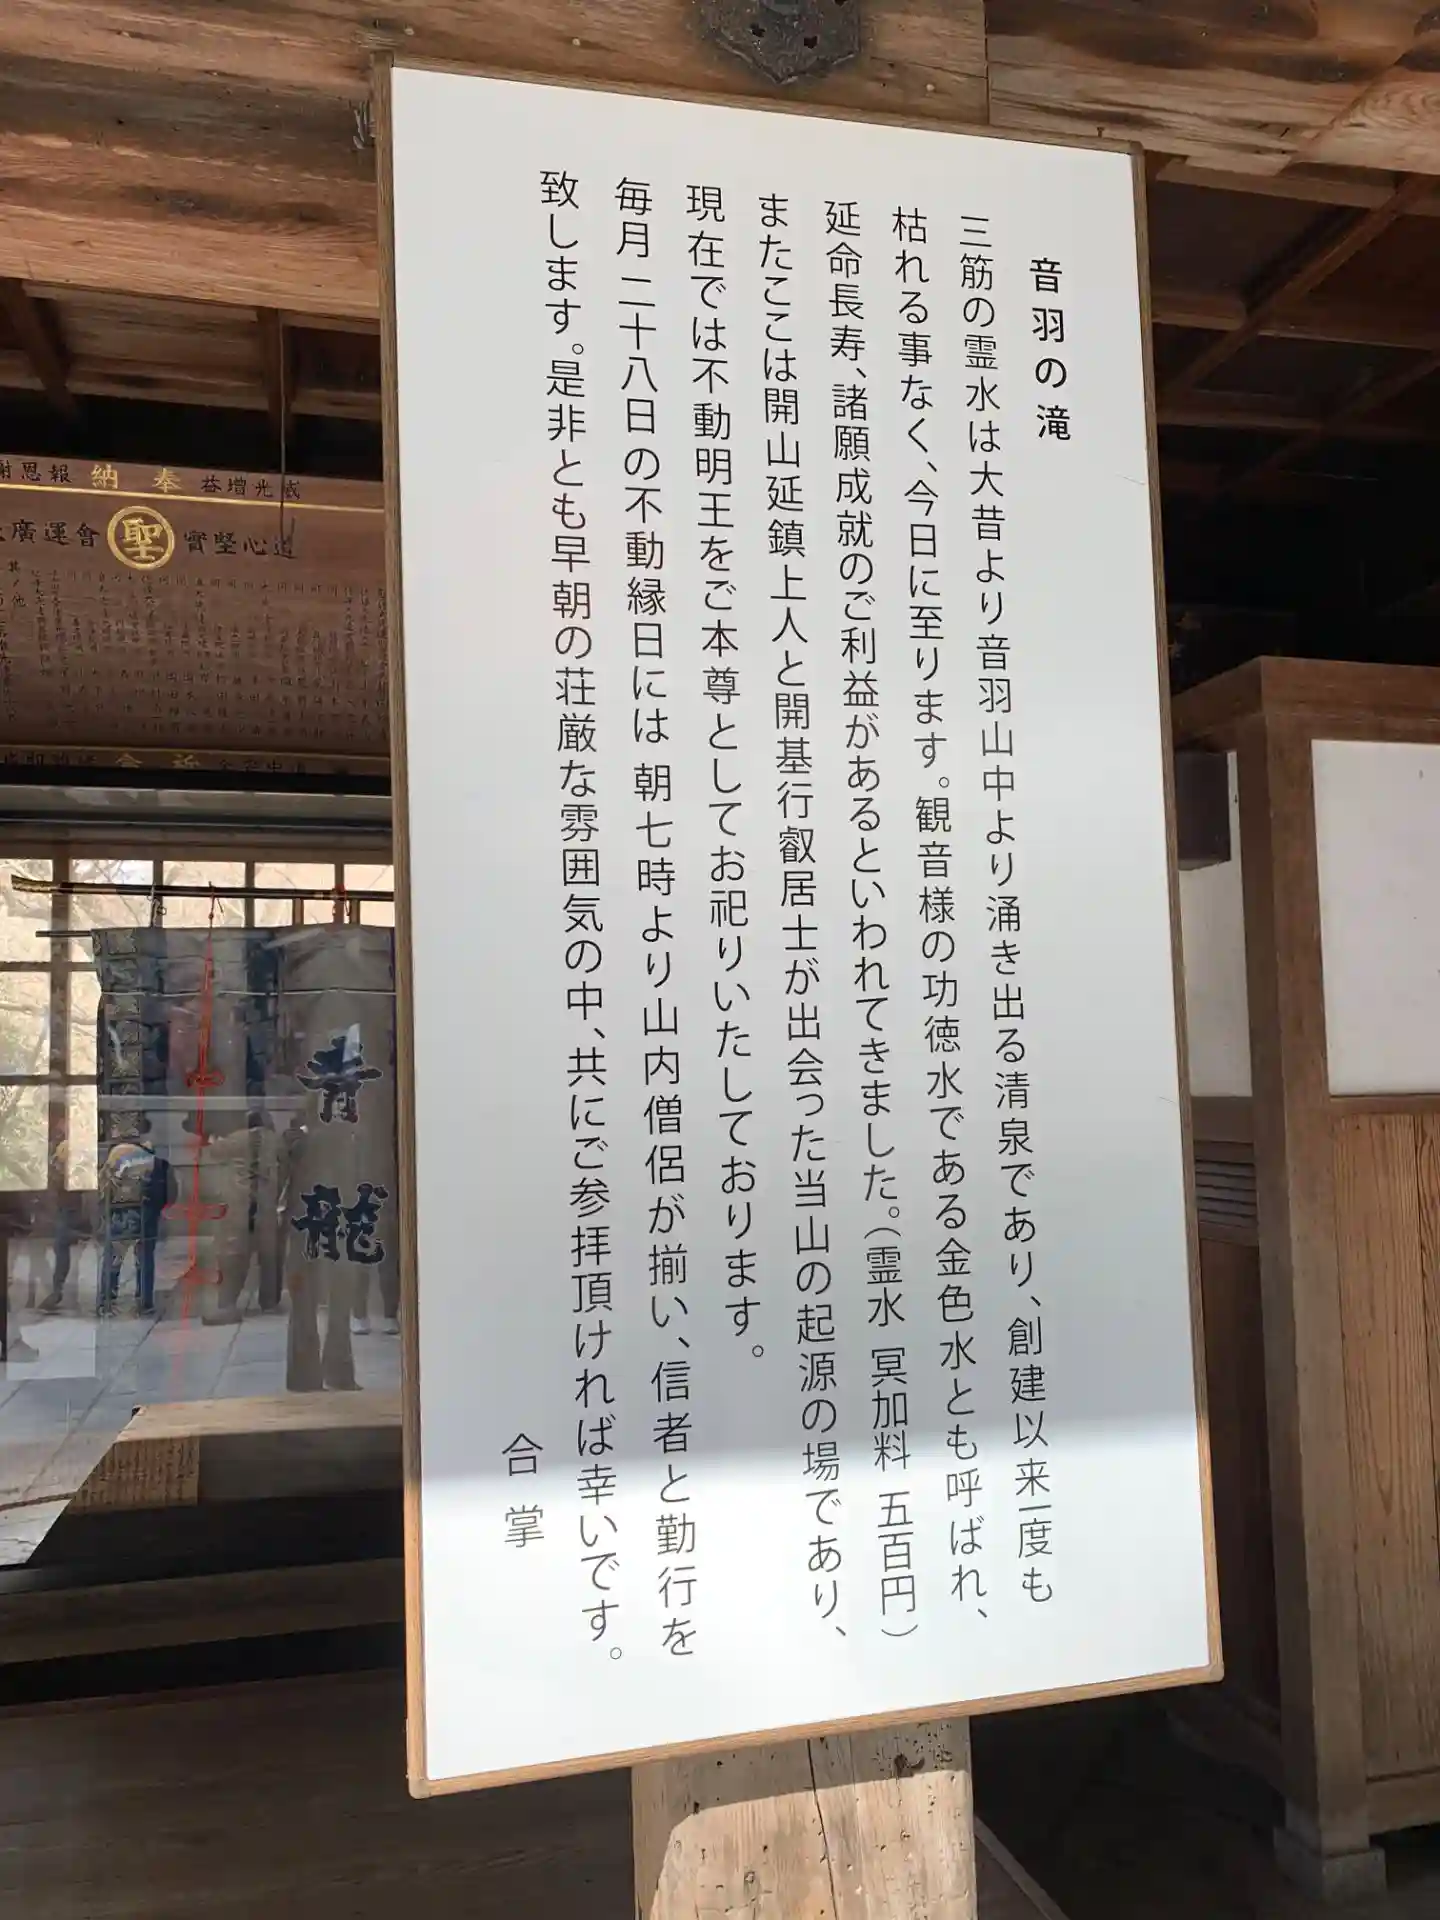 音羽の滝
三筋の霊水は大昔より音羽山中より涌き出る清泉であり、創建以来一度も
枯れる事なく、今日に至ります。観音様の功徳水である金色水とも呼ばれ、
延命長寿、諸願成就のご利益があるといわれてきました。（霊水 冥加料 五百円）
またここは開山延鎮上人と開基行叡居士が出会った当山の起源の場であり、
現在では不動明王をご本尊としてお祀りいたしております。
毎月 二十八日の不動縁日には 朝七時より山内僧侶が揃い、信者と勤行を
致します。是非とも早朝の荘厳な雰囲気の中、共にご参拝頂ければ幸いです。
合掌
謝恩報 納奉 益増光威
廣運會 聖 實堅心道
青龍